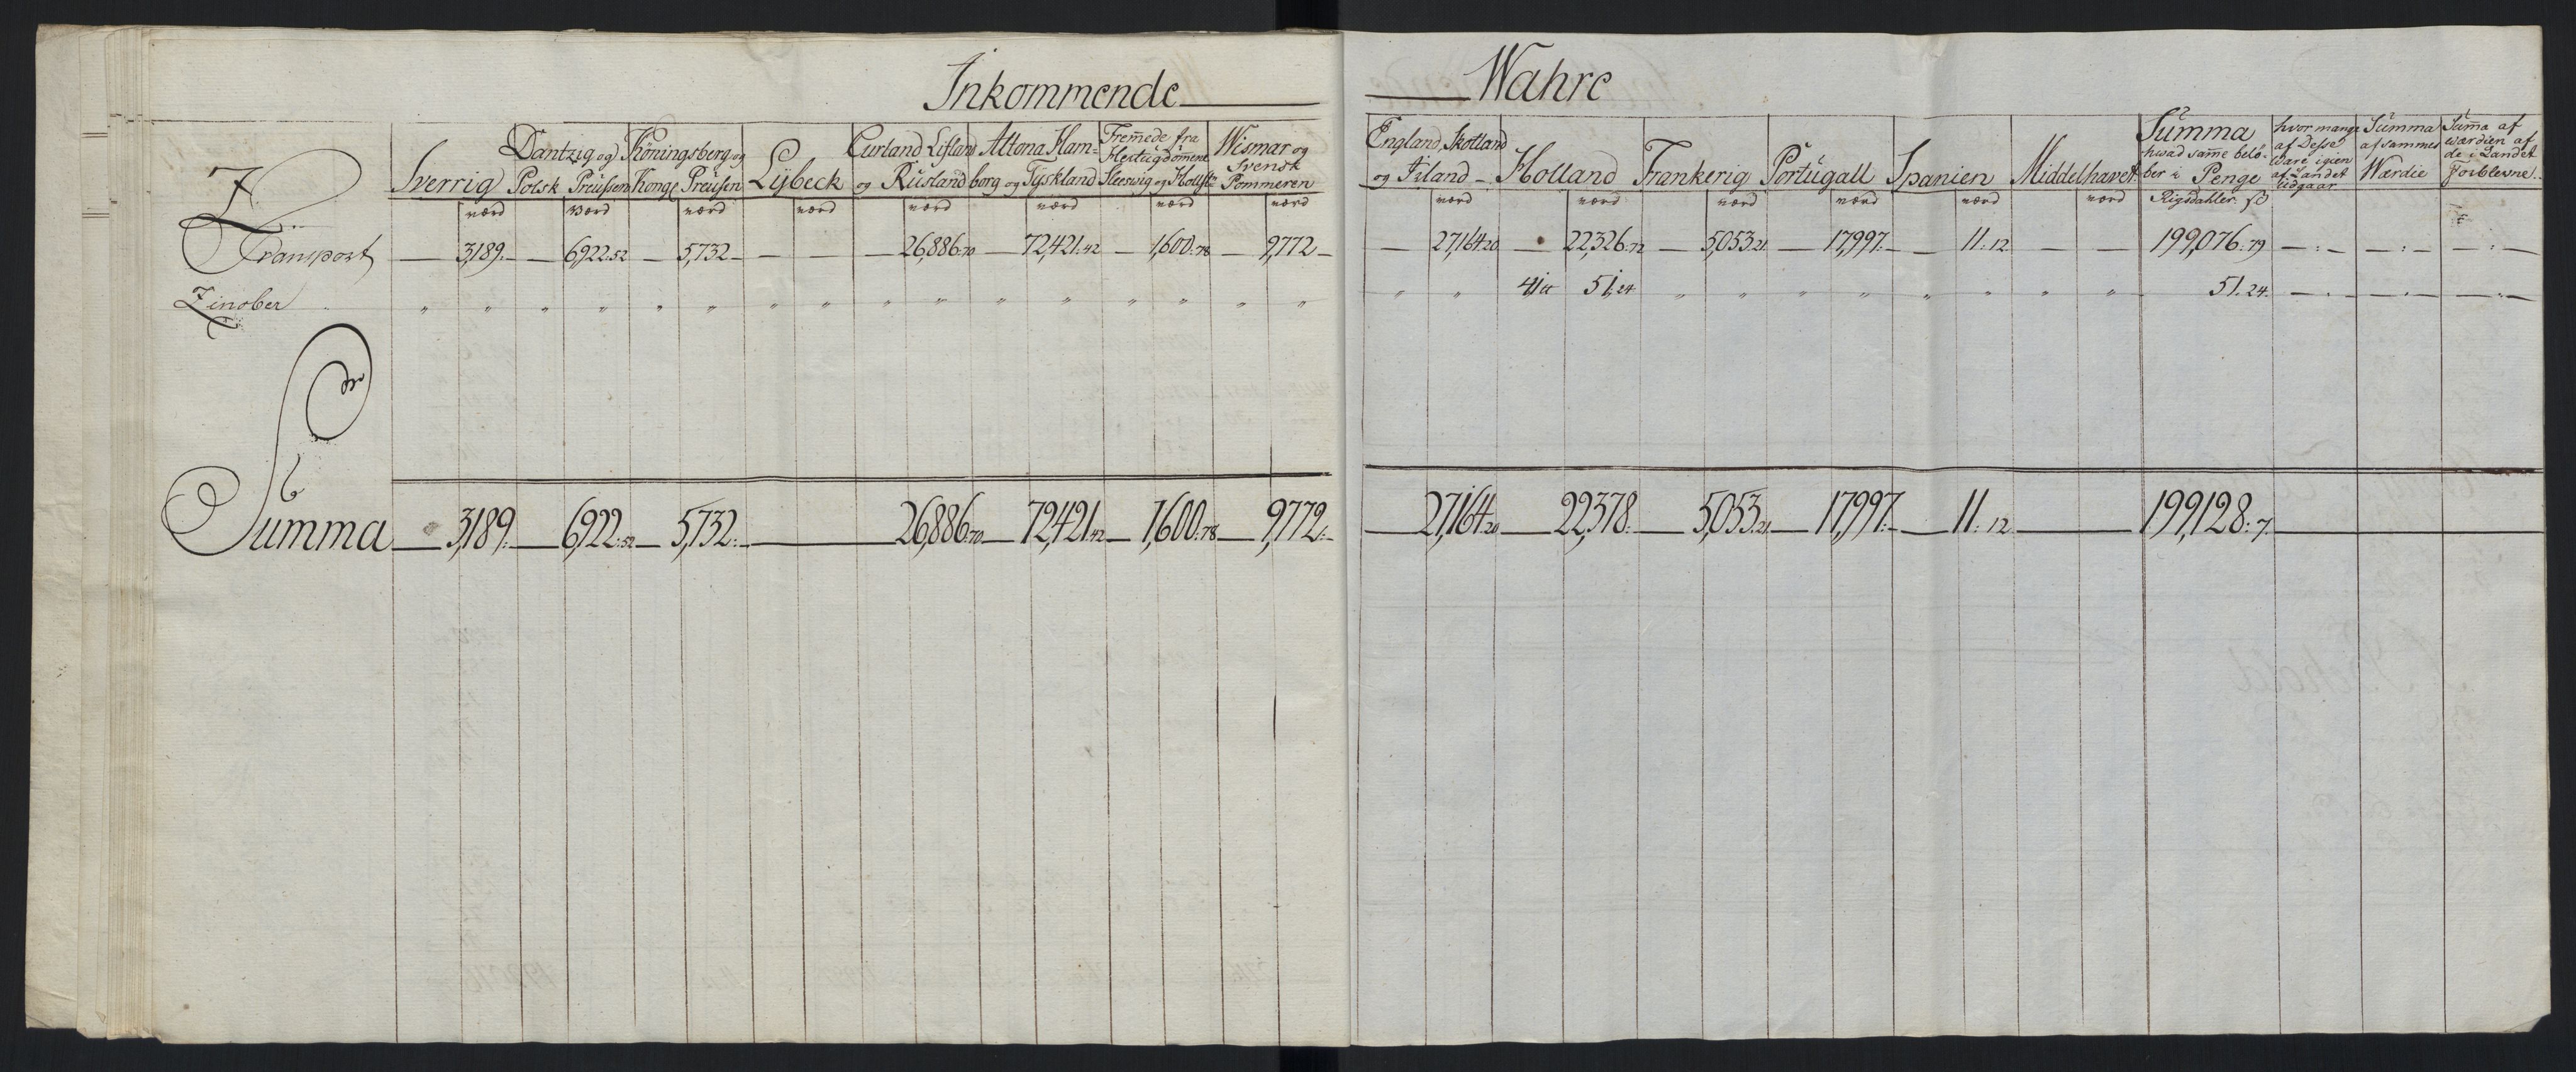 Inkommende Wahre
Z
Sverrig
Dantzig og Polsk Preussen
Köningsberg og Konge Preusen
Lybeck
Curland Lifland og Rüsland
Altona Hamborg og Tyskland
Fremede fra Hertugdømene Sleswig og Hollste
Wismar og Svensk Pommeren
England, Skotland og Irland
Holland
Frankerig
Portugall
Spanien
Middelhavet
Summa hvad samme belöber i Penge
hvor mange af Desse Ware igien af Landet udgaar
Summa af sammes Wærdie
Summa af wærdien af de i Landet Forblevne
værd værd værd værd værd værd værd værd værd værd værd værd værd værd Rigsdahler ß
Transport — 3,189. — 6,922. 52 — 5,732 — — — — 26,886. 70 — 72,421. 42 — 1,600. 78 — 9,772 — — 27,164. 20 — 22,326. 72 — 5,053. 21 — 17,997. — 11. 12. — — 199,076. 79 — . — — . — — . —
Zinober " " " " " " " " " " " " " " " " " " 41 ℔ 51. 24 " " " " " " " " 51. 24. — . — — . — — . —
Summa — 3,189. — 6,922. 52 — 5,732. — 26,886. 70 — 72,421. 42 — 1,600. 78 — 9,772. — 27,164. 20 — 22,378. — 5,053. 21 — 17,997. — 11. 12 — 199,128. 7.